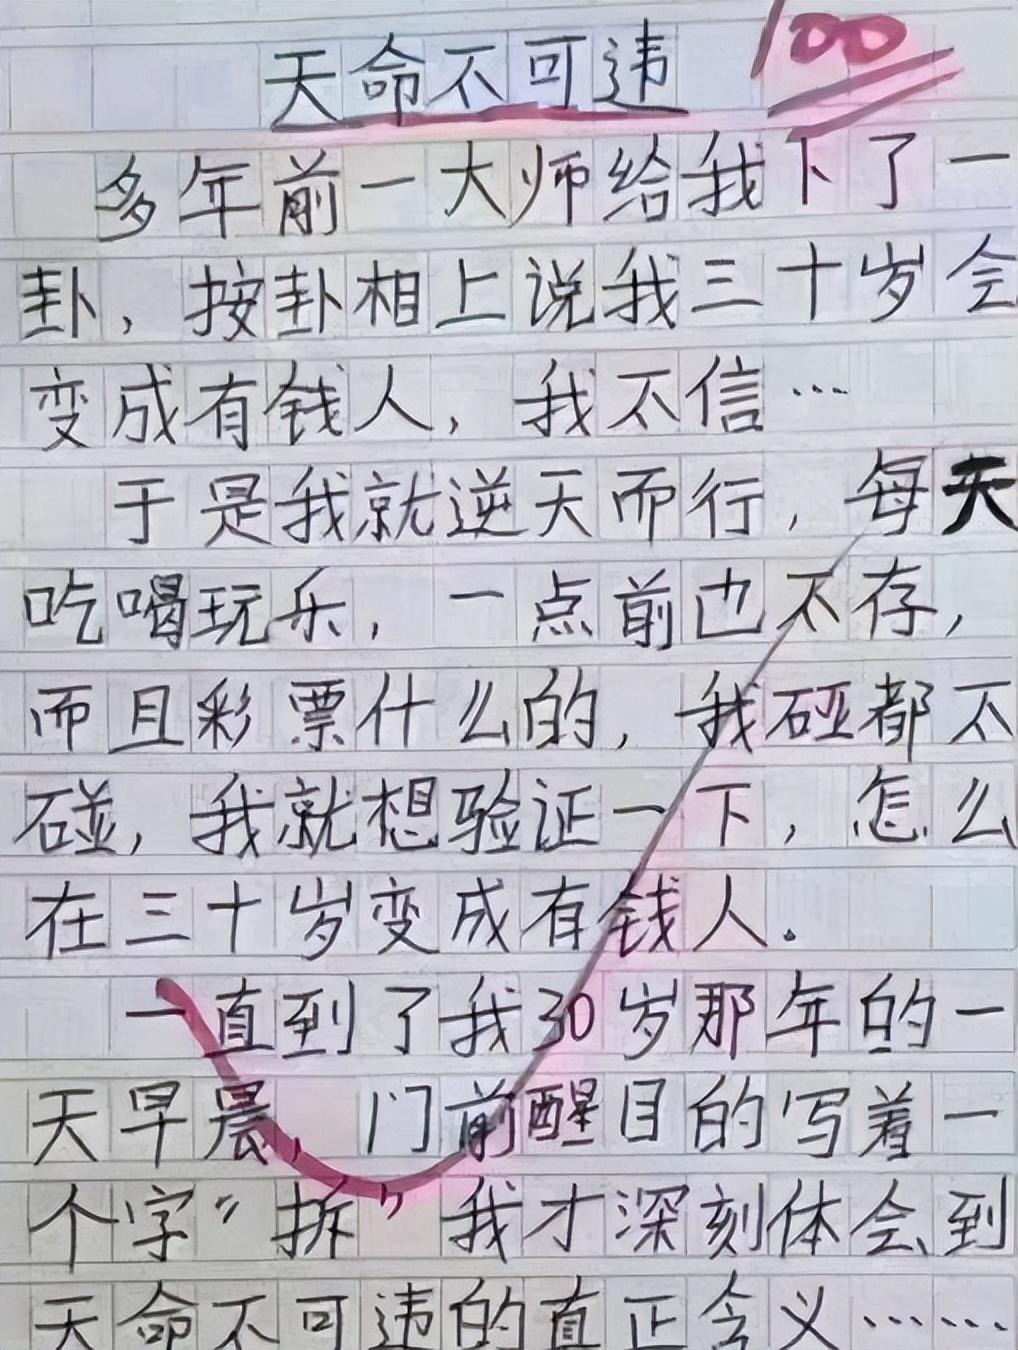 100
天命不可违
多年前一大师给我下了一
卦，按卦相上说我三十岁会
变成有钱人，我不信…
于是我就逆天而行，每天
吃喝玩乐，一点前也不存，
而且彩票什么的，我碰都不
碰，我就想验证一下，怎么
在三十岁变成有钱人。
一直到了我30岁那年的一
天早晨，门前醒目的写着一
个字“拆”我才深刻体会到
天命不可违的真正含义……